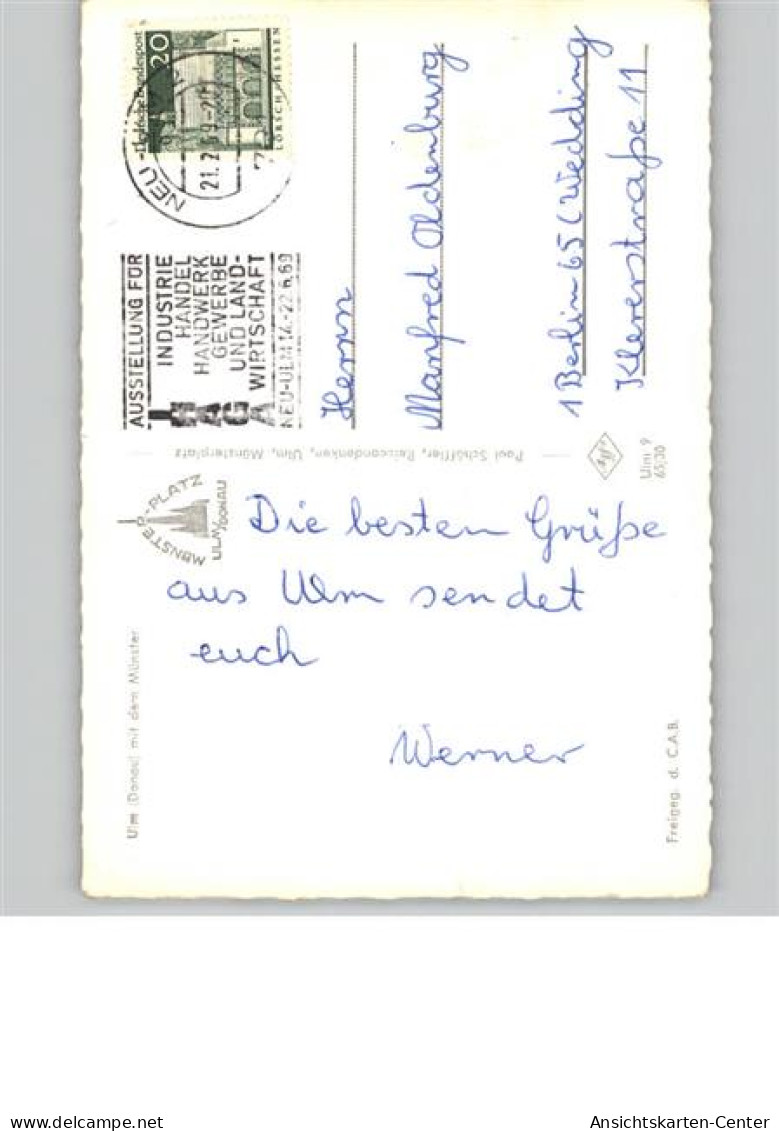 Deutsche Bundespost
20
LORSCH/HESSEN
NEU-
21. 2. 69-20
AUSSTELLUNG FÜR
INDUSTRIE
HANDEL
HANDWERK
GEWERBE
UND LAND-
WIRTSCHAFT
NEU-ULM 14.-22.6.69
Herrn
Manfred Oldenburg
1 Berlin 65 (Wedding
Kleverstraße 11
Paul Schöffler, Reiseandenken, Ulm, Münsterplatz
Ulm 9
65/30
MÜNSTER-PLATZ
ULM/DONAU
Die besten Grüße
aus Ulm sendet
euch
Werner
Ulm (Donau) mit dem Münster
Freigeg. d. C.A.B.
Ansichtskarten-Center